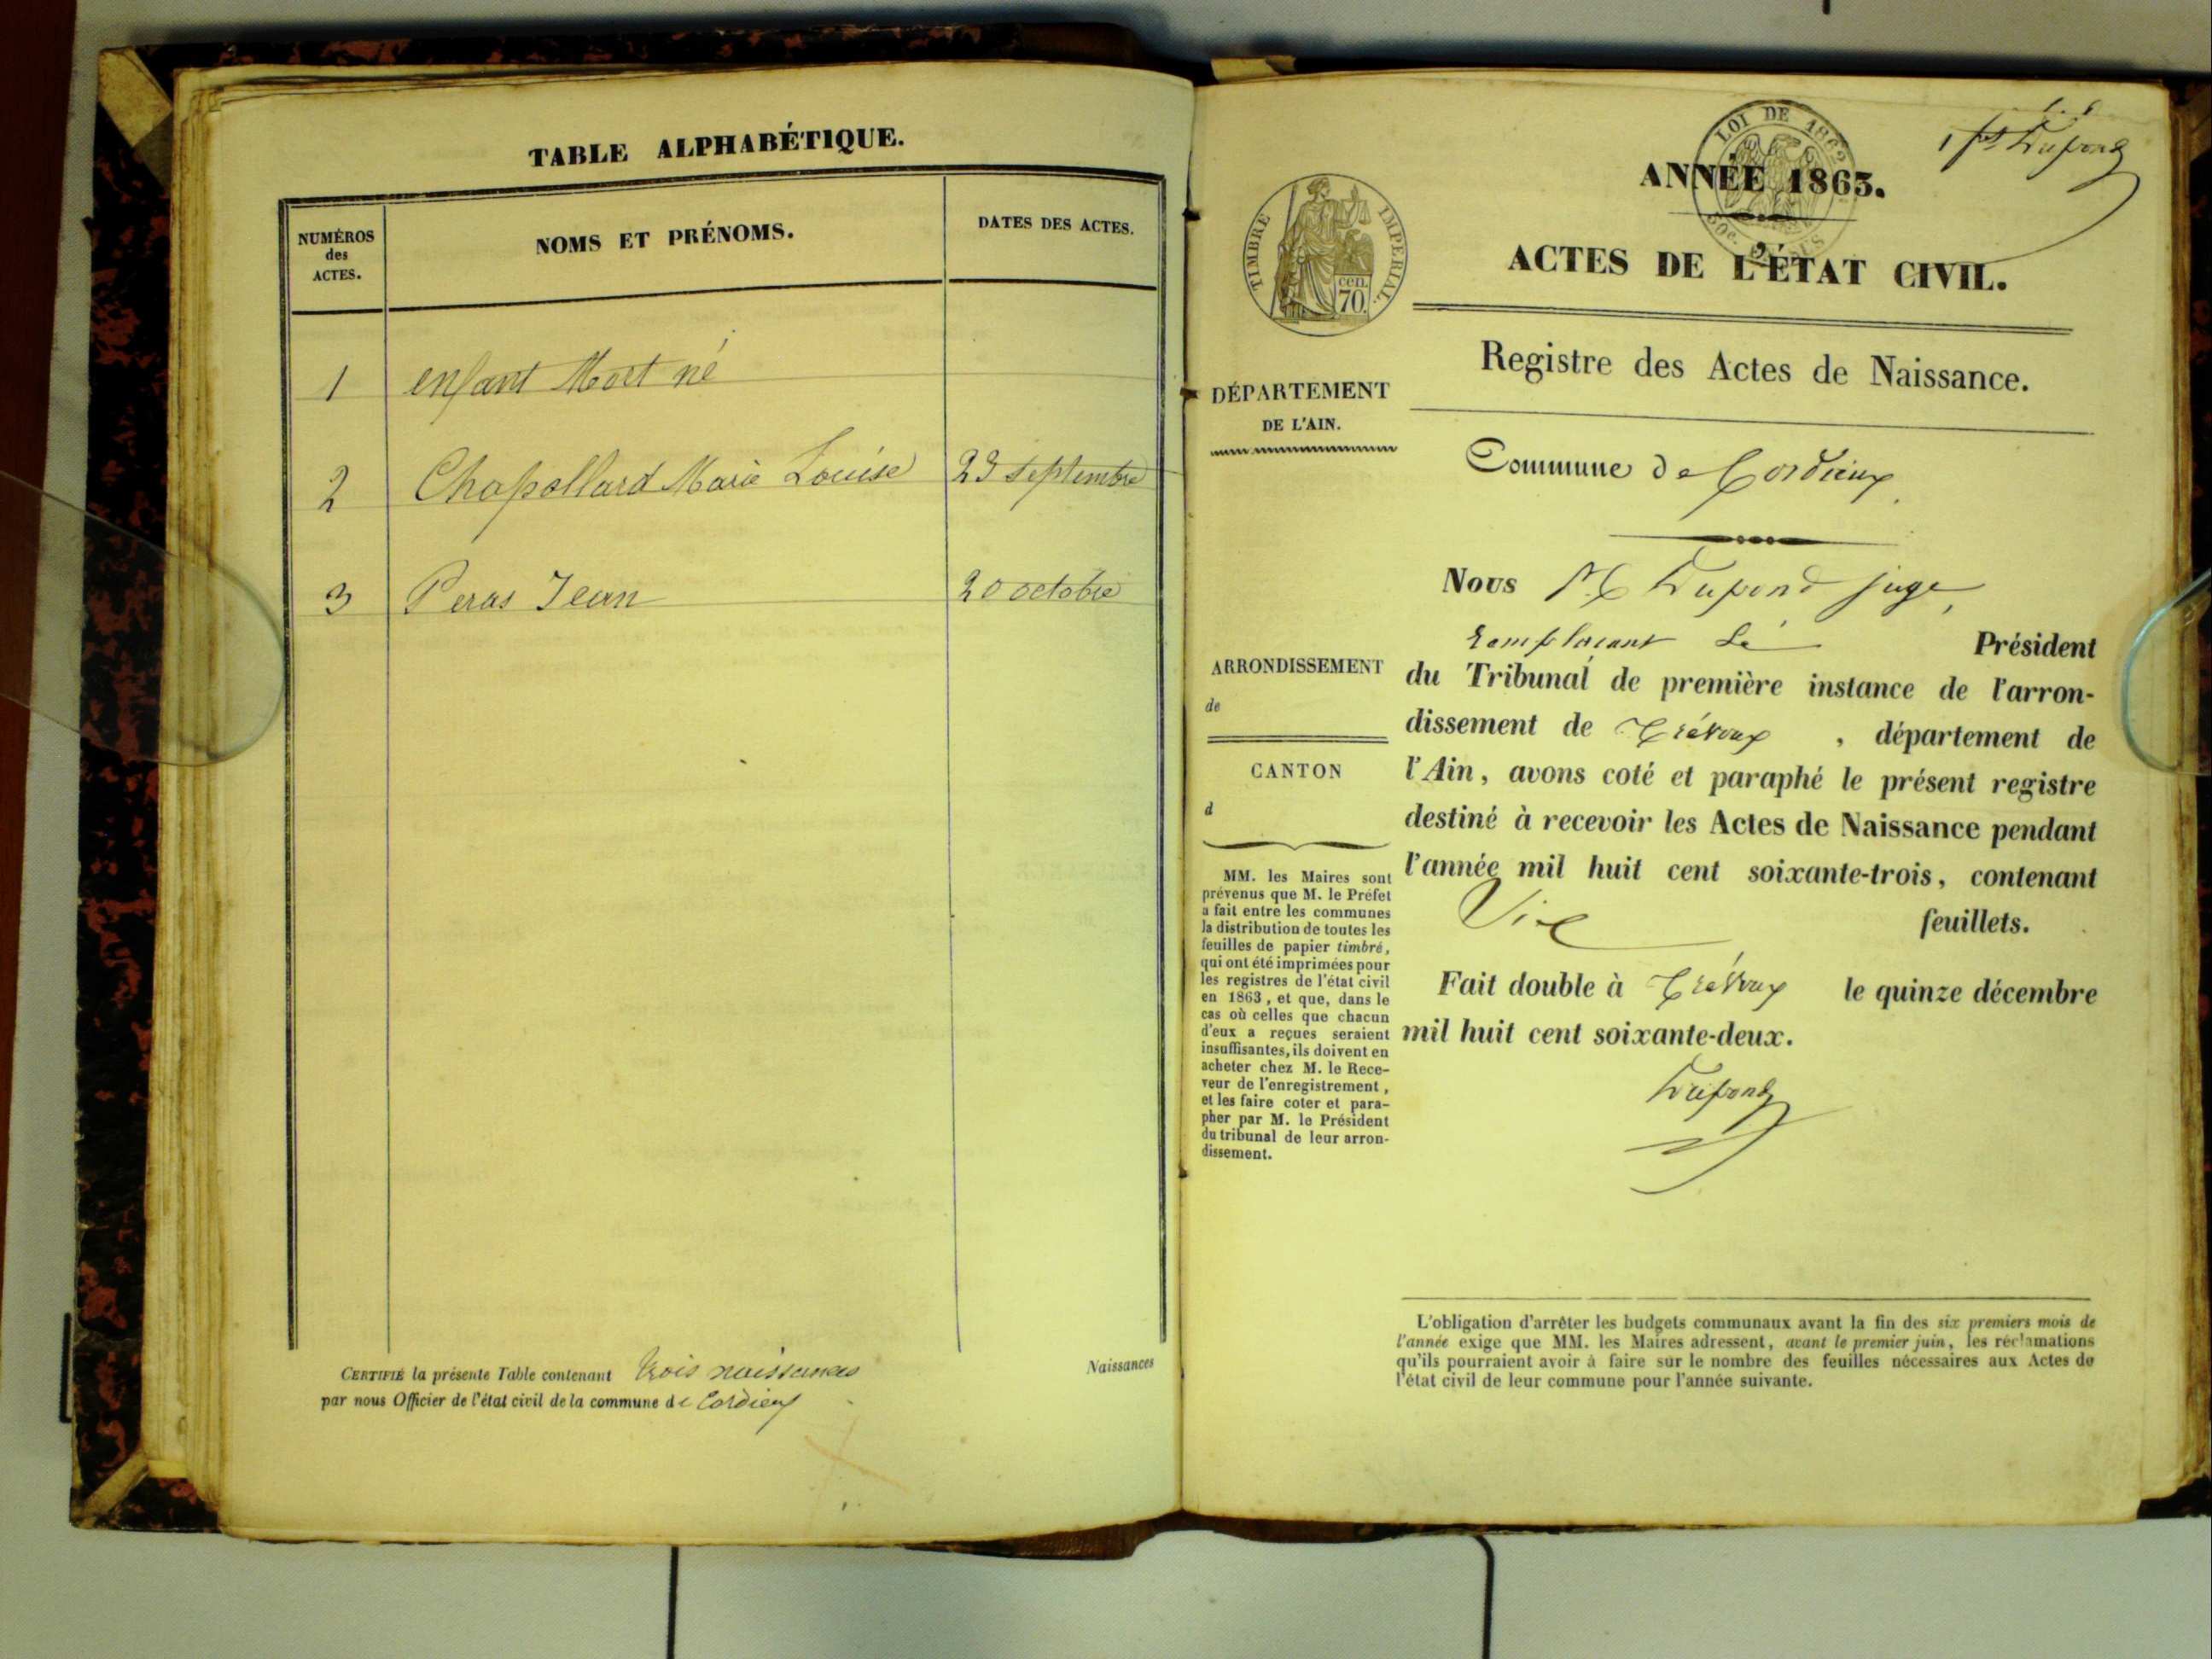 TABLE ALPHABÉTIQUE.
NUMÉROS des ACTES.
NOMS ET PRÉNOMS.
DATES DES ACTES.
1 enfant Mort né
2 Chapollard Marie Louise 23 septembre
3 Peras Jean 20 octobre
CERTIFIÉ la présente Table contenant trois naissances Naissances
par nous Officier de l'état civil de la commune de Cordieux
LOI DE 1862
1 ft Dupond
ANNÉE 1863.
ACTES DE L'ÉTAT CIVIL.
TIMBRE IMPERIAL
cen.
70.
Registre des Actes de Naissance.
DÉPARTEMENT
DE L'AIN.
Commune de Cordieux
Nous Dupond juge,
remplaçant Le Président
ARRONDISSEMENT
de
CANTON
d
du Tribunal de première instance de l'arron-
dissement de Trévoux, département de
l'Ain, avons coté et paraphé le présent registre
destiné à recevoir les Actes de Naissance pendant
l'année mil huit cent soixante-trois, contenant
Six feuillets.
Fait double à Trévoux le quinze décembre
mil huit cent soixante-deux.
Dupond
MM. les Maires sont
prévenus que M. le Préfet
a fait entre les communes
la distribution de toutes les
feuilles de papier timbré,
qui ont été imprimées pour
les registres de l'état civil
en 1863, et que, dans le
cas où celles que chacun
d'eux a reçues seraient
insuffisantes, ils doivent en
acheter chez M. le Rece-
veur de l'enregistrement,
et les faire coter et para-
pher par M. le Président
du tribunal de leur arron-
dissement.
L'obligation d'arrêter les budgets communaux avant la fin des six premiers mois de
l'année exige que MM. les Maires adressent, avant le premier juin, les réclamations
qu'ils pourraient avoir à faire sur le nombre des feuilles nécessaires aux Actes de
l'état civil de leur commune pour l'année suivante.